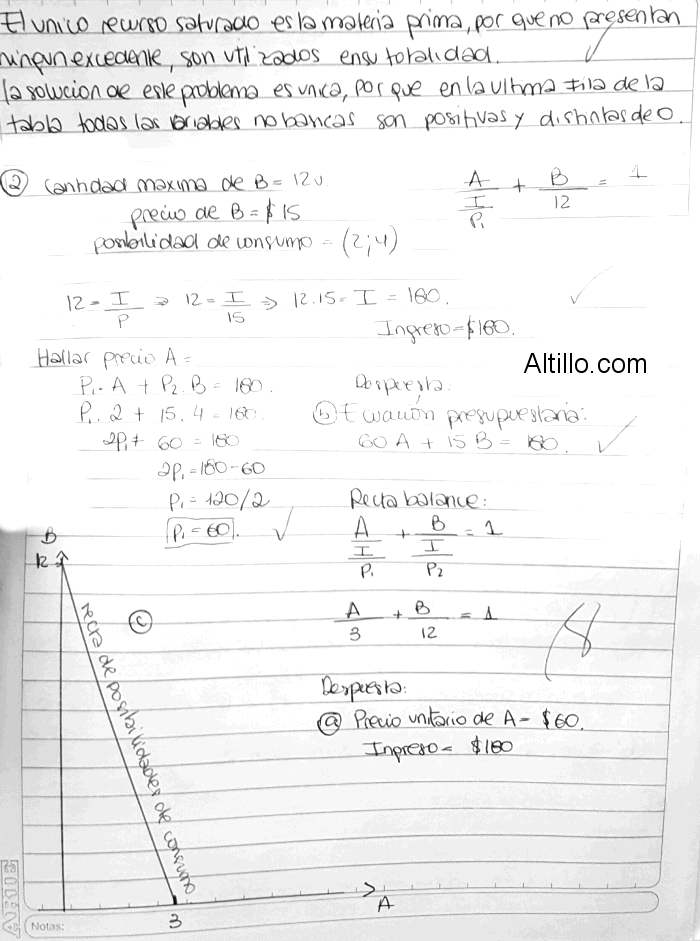 El unico recurso saturado es la materia prima, por que no presentan
ningun excedente, son utilizados en su totalidad.
la solucion de este problema es unica, por que en la ultima fila de la
tabla todas las variables no bancas son positivas y distintas de 0.
② Cantidad maxima de B = 12u
A / I/P₁ + B / 12 = 1
precio de B = $15
posibilidad de consumo = (2;4)
12 = I/P ⇒ 12 = I/15 ⇒ 12.15 = I = 180.
Ingreso = $180.
Altillo.com
Hallar precio A =
P₁. A + P₂. B = 180.
P₁. 2 + 15. 4 = 180.
2P₁ + 60 = 180
2P₁ = 180-60
P₁ = 120/2
P₁ = 60.
Respuesta:
ⓑ Ecuación presupuestaria:
60 A + 15 B = 180.
Recta balance:
A / I/P₁ + B / I/P₂ = 1
A/3 + B/12 = 1
8
Respuesta:
ⓐ Precio unitario de A = $60.
Ingreso = $180
ⓒ
B
12
recta de posibilidades de consumo
3
A
Notas: